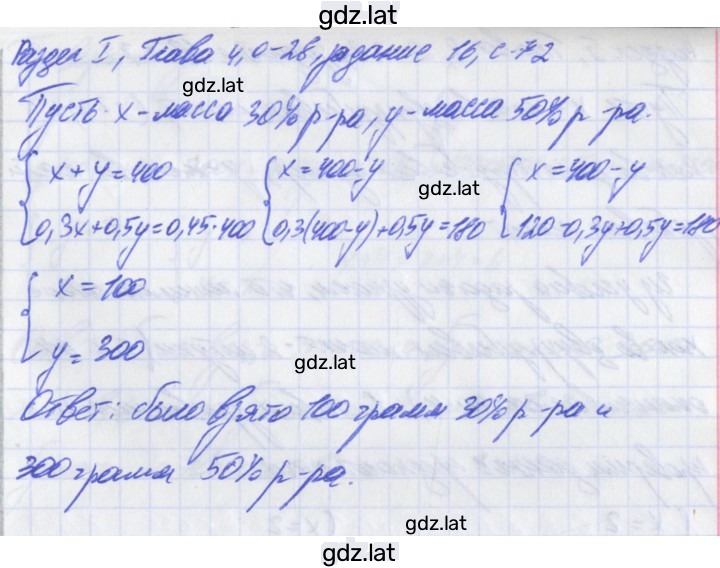 gdz.lat
Раздел I, Глава 4, 0-28, задание 16, с-72
gdz.lat
Пусть x-масса 30% р-ра, y-масса 50% р-ра.
{ x+y=400 { x=400-y { x=400-y
gdz.lat
0,3x+0,5y=0,45·400 0,3(400-y)+0,5y=180 120-0,3y+0,5y=180
{ x=100
y=300
gdz.lat
Ответ: было взято 100 грамм 30% р-ра и
300 грамм 50% р-ра.
gdz.lat
gdz.lat